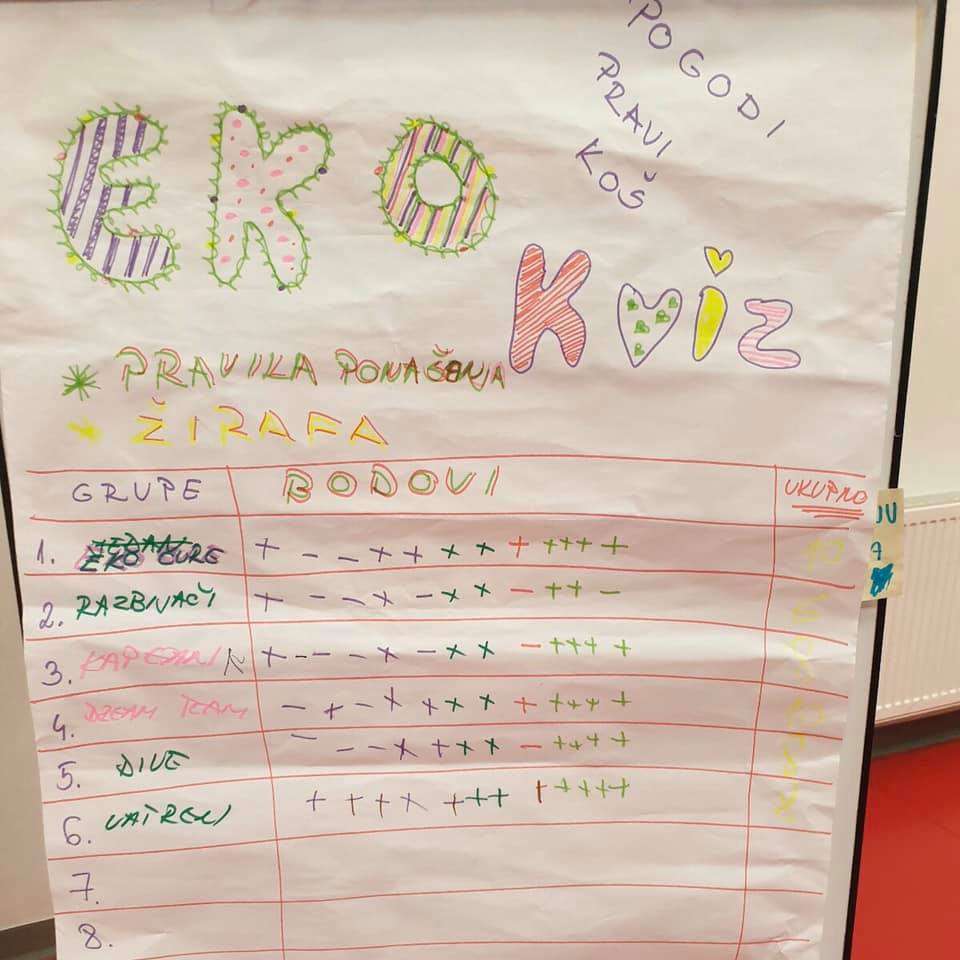 POGODI
PRAVI
KOŠ
EKO
Kviz
* PRAVILA PONAŠANJA
* ŽIRAFA
GRUPE BODOVI UKUPNO
1. EKO CURE + - - + + + + + + + + +
2. RAZBIJAČI + - - - + - + + - + + -
3. + - - - + - + + - + + + +
4. DREAM TEAM - + - + + + + + + + + +
5. DIVE - - - + + + + - + + + +
6. VATRENI + + + + + + + + + + + +
7.
8.